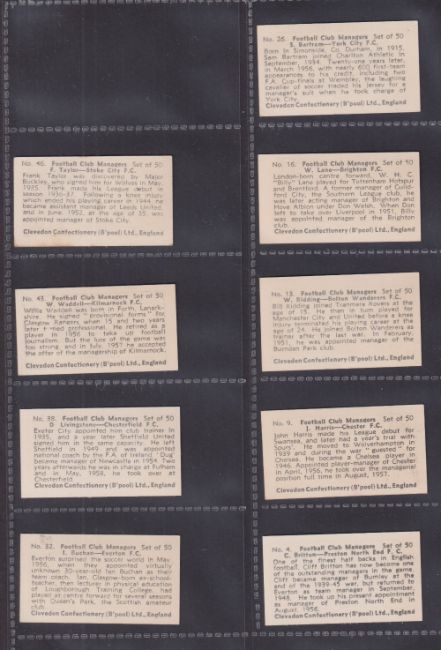 No. 26. Football Club Managers Set of 50
S. Bartram—York City F.C.
Born in Simonside, Co. Durham, in 1915,
Sam Bartram joined Charlton Athletic in
September, 1934. Twenty-one years later,
in March 1956, with nearly 600 first-team
appearances to his credit, including two
F.A. Cup-finals at Wembley, the laughing
cavalier of soccer traded his jersey for a
manager's suit when he took charge of
York City.
Clevedon Confectionery (B'pool) Ltd., England
No. 46. Football Club Managers Set of 50
F. Taylor—Stoke City F.C.
Frank Taylor was discovered by Major
Buckley, who signed him for Wolves in May,
1935. Frank made his League debut in
season 1936-37. Following a knee injury
which ended his playing career in 1944 he
became assistant manager of Leeds United
and in June, 1952, at the age of 35 was
appointed manager of Stoke City.
Clevedon Confectionery (B'pool) Ltd., England
No. 16. Football Club Managers Set of 50
W. Lane—Brighton F.C.
London-born centre forward, W. H. C.
"Billy" Lane played for Tottenham Hotspur
and Brentford. A former manager of Guild-
ford City, the Southern League club, he
was later acting manager of Brighton and
Hove Albion under Don Welsh. When Don
left to take over Liverpool in 1951, Billy
was appointed manager of the Brighton
club.
Clevedon Confectionery (B'pool) Ltd., England
No. 43. Football Club Managers Set of 50
W. Waddell—Kilmarnock F.C.
Willie Waddell was born in Forth, Lanark-
shire. He signed "provisional forms" for
Glasgow Rangers when 15 and two years
later turned professional. He retired as a
player in 1956 to take up football
journalism. But the lure of the game was
too strong and in July 1957 he accepted
the offer of the managership of Kilmarnock.
Clevedon Confectionery (B'pool) Ltd., England
No. 13. Football Club Managers Set of 50
W. Ridding—Bolton Wanderers F.C.
Bill Ridding joined Tranmere Rovers at the
age of 15. He then in turn played for
Manchester City and United before a knee
injury terminated his playing career at the
age of 24. He joined Bolton Wanderers as
trainer after the last war. In February,
1951, he was appointed manager of the
Burnden Park club.
Clevedon Confectionery (B'pool) Ltd., England
No. 38. Football Club Managers Set of 50
D. Livingstone—Chesterfield F.C.
Exeter City appointed him club trainer in
1935, and a year later Sheffield United
signed him in the same capacity. He left
Sheffield in 1949 and was appointed
national coach by the F.A. of Ireland. "Dug"
became manager of Newcastle in 1954. Two
years afterwards he was in charge at Fulham
and in May, 1958, he took over at
Chesterfield.
Clevedon Confectionery (B'pool) Ltd., England
No. 9. Football Club Managers Set of 50
J. Harris—Chester F.C.
John Harris made his League debut for
Swansea, and later had a year's trial with
Spurs'. He moved to Wolverhampton in
1939 and during the war "guested" for
Chelsea. He became a Chelsea player in
1946. Appointed player-manager of Chester
in April, 1956, he took over the managerial
position full time in August, 1957.
Clevedon Confectionery (B'pool) Ltd., England
No. 32. Football Club Managers Set of 50
I. Buchan—Everton F.C.
Everton surprised the soccer world in May,
1956, when they appointed virtually
unknown 35-year-old Ian Buchan as their
team coach. Ian, Glasgow-born ex-school-
teacher, then lecturer in physical education
of Loughborough Training College, had
played at centre forward for several seasons
with Queen's Park, the Scottish amateur
club.
Clevedon Confectionery (B'pool) Ltd., England
No. 4. Football Club Managers Set of 50
C. Britton—Preston North End F.C.
One of the finest half backs in English
football, Cliff Britton has now become one
of the outstanding managers in the game.
Cliff became manager of Burnley at the
end of the 1939-45 war, but returned to
Everton as team manager in September,
1948. He took up his present appointment
as manager of Preston North End in
August, 1956.
Clevedon Confectionery (B'pool) Ltd., England